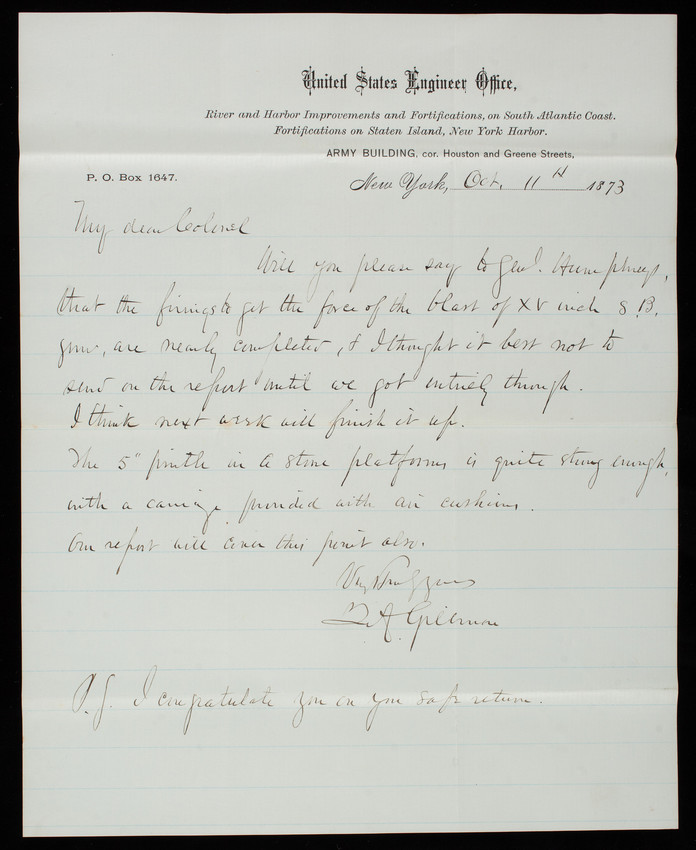 United States Engineer Office,
River and Harbor Improvements and Fortifications, on South Atlantic Coast.
Fortifications on Staten Island, New York Harbor.
ARMY BUILDING, cor. Houston and Greene Streets,
P. O. Box 1647.
New York, Oct. 11th 1873
My dear Colonel
Will you please say to Genl. Humphreys,
that the firings to get the force of the blast of XV inch S.B.
guns, are nearly completed, & I thought it best not to
send on the report until we got entirely through.
I think next week will finish it up.
The 5" pintle in a stone platform is quite strong enough,
with a carriage provided with air cushions.
Our report will cover this point also.
Very Truly yours
Q. A. Gillmore
P.S. I congratulate you on your safe return.